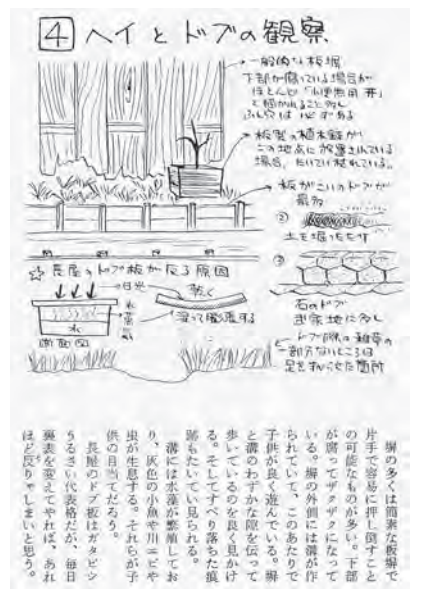 4 ヘイとドブの観察
一般的な板塀
下部が腐っている場合が
ほとんど「小便無用 井」
と描かれること多し
板製の植木鉢が
この地点に放置されている
場合、たいてい枯れている。
板がこいのドブが
最多
②
土を掘っただけ
③
石のドブ
武家地に多し
ドブ際の雑草の
一部分ないところは
足をすべらせた箇所
☆長屋のドブ板が反る原因
日光
乾く
湿って膨張する
水
断面図
塀の多くは簡素な板塀で
片手で容易に押し倒すこと
の可能なものが多い。下部
が腐ってザクザクになって
いる。塀の外側には溝が作
られていて、このあたりで
子供が良く遊んでいる。塀
と溝のわずかな隙を伝って
歩いているのを良く見かけ
る。そしてすべり落ちた痕
跡もたいてい見られる。
溝には水藻が繁殖してお
り、灰色の小魚や川エビや
虫が生息する。それらが子
供の目当てだろう。
長屋のドブ板はガタピシ
うるさい代表格だが、毎日
裏表を変えてやれば、あれ
ほど反りゃしまいと思う。